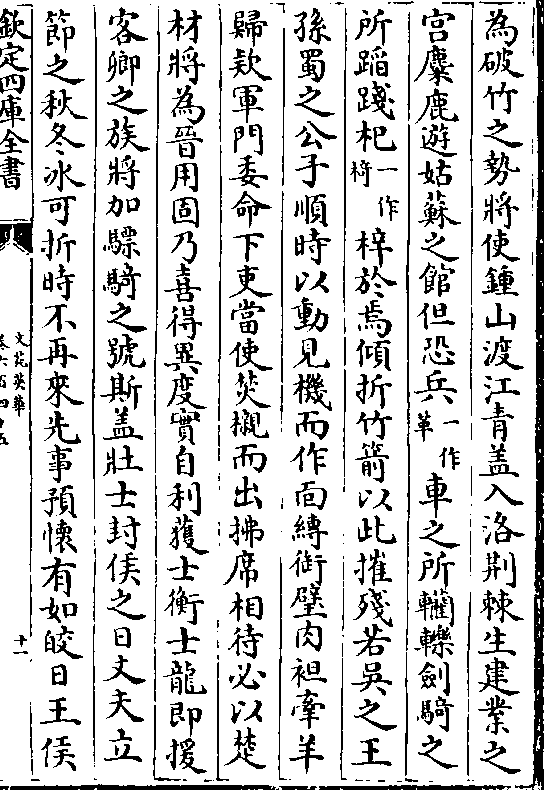 為破竹之勢將使鍾山渡江青盖入洛荆棘生建業之
宫麋鹿遊姑蘇之館但恐兵一作革車之所轥轢劍騎之
所蹈踐杞一作椅梓於焉傾折竹箭以此摧殘若吳之王
孫蜀之公子順時以動見機而作面縛銜璧肉袒牽羊
歸欵軍門委命下吏當使焚櫬而出拂席相待必以楚
材將為晉用固乃喜得異度實自利獲士衡士龍即援
客卿之族將加驃騎之號斯盖壯士封侯之日丈夫立
節之秋冬冰可折時不再來先事預懷有如皎日王侯
欽定四庫全書
文苑英華
卷六百四十五
十一